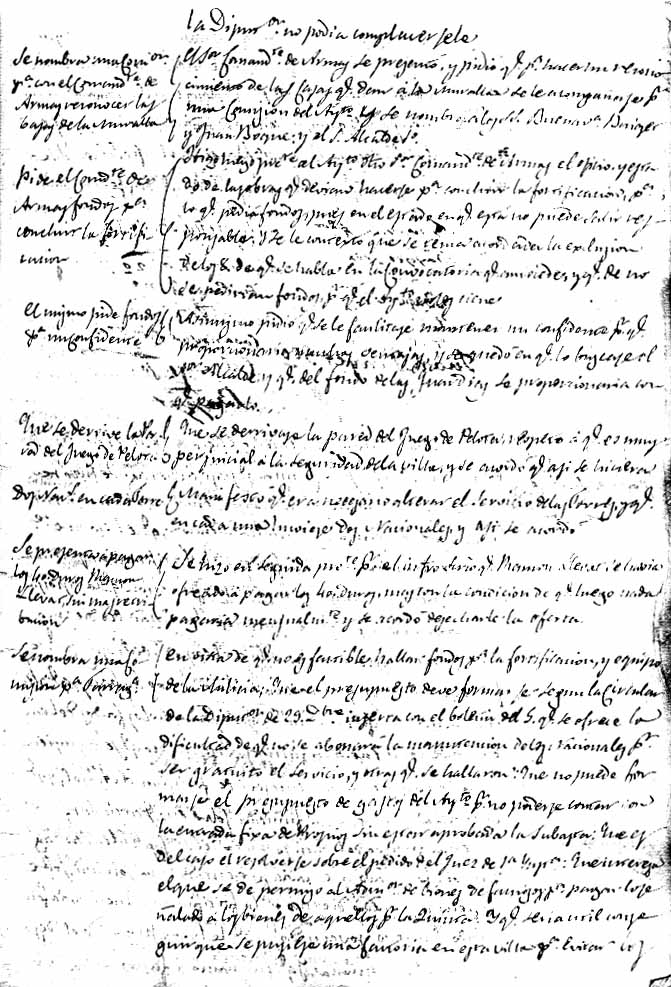 la Dipu.on no podia complacersele
Se nombra una Com.on
p.a con el Comand.te de
Armas reconocer las
bajas de la Muralla
El S.or Comand.te de Armas se presentó, y pidió q.e p.a hacer un recono
cimiento de las Casas q.e dan á la Muralla se le acompañase p.r
una Comision del Ay.to y se nombró á los S.s Buenav.a
y Juan Boque, y el S. Alcalde
Pide el Comd.te de
Armas fondos p.a
concluir la fortifi
cacion
al Ay.to dho S.or Comand.te de Armas el oficio, y esta
do de las obras q.e devian hacerse p.a concluir la fortificacion, p.a
lo q.e pedia fondos, pues en el estado en q.e esta no puede salir res
ponsable; y se le contestó que se tenia acordada la exclusion
de los de q.e se habla en la Convocatoria y q.e de no
se pedirian fondos p.r q.e el Ay.to no los tiene
El mismo pide fondos
p.a un confidente
Asimismo pidió q.e se le facilitase mantener un confidente p.a q.e
proporcionaria muchas ventajas, y se quedó en q.e lo buscase el
S.or Alcalde, y q.e del fondo de las Guardias se proporcionaria con
q.e pagarlo.
Que se derrive la Pa
red del Juego de Pelota
Que se derrivase la pared del Juego de Pelota, respeto á q.e es muy
perjudicial á la seguridad de la villa, y se acordó q.e asi se hiciera
Dos Nac.s en cada Torre
Manifestó q.e era necesario alterar el servicio de las Torres, y q.e
en cada una hubiese Dos Nacionales, y asi se acordó
Se presenta á pagar
los Ramon
Llevat sin mas retri
bucion
Se hizo en seguida pre.te p.r el infro Srio q.e Ramon Llevat se havia
ofrecido á pagar los mas con la condicion de q.e luego nada
pagaria mensualm.te y se acordó desecharle la oferta.
Se nombra una Co
mision p.a
en vista de q.e no es factible hallar fondos p.a la fortificacion, y equipo
de la Milicia; Que el presupuesto deve formarse segun la Circular
de la Dipu.on de 29 inserta con el boletin del 5. q.e se ofrece la
dificultad de q.e no se abonará la manutencion de los nacionales p.r
ser gratuito el servicio, y otras q.e se hallaron: Que no puede for
marse el presupuesto de gastos del Ay.to p.r no poderse contar con
la entrada fixa de Propios sin estar aprobada la subasta: Que es
del caso el resolverse sobre el pedido del Juez de 1.a Ynst.a: Que interesa
el que se de permiso al Adm.or de bienes de fugados p.a pagar lo se
ñalado á los bienes de aquellos p.r la Quinta. Y q.e seria util conse
guir que se pusiese una factoria en esta villa p.a evitar los